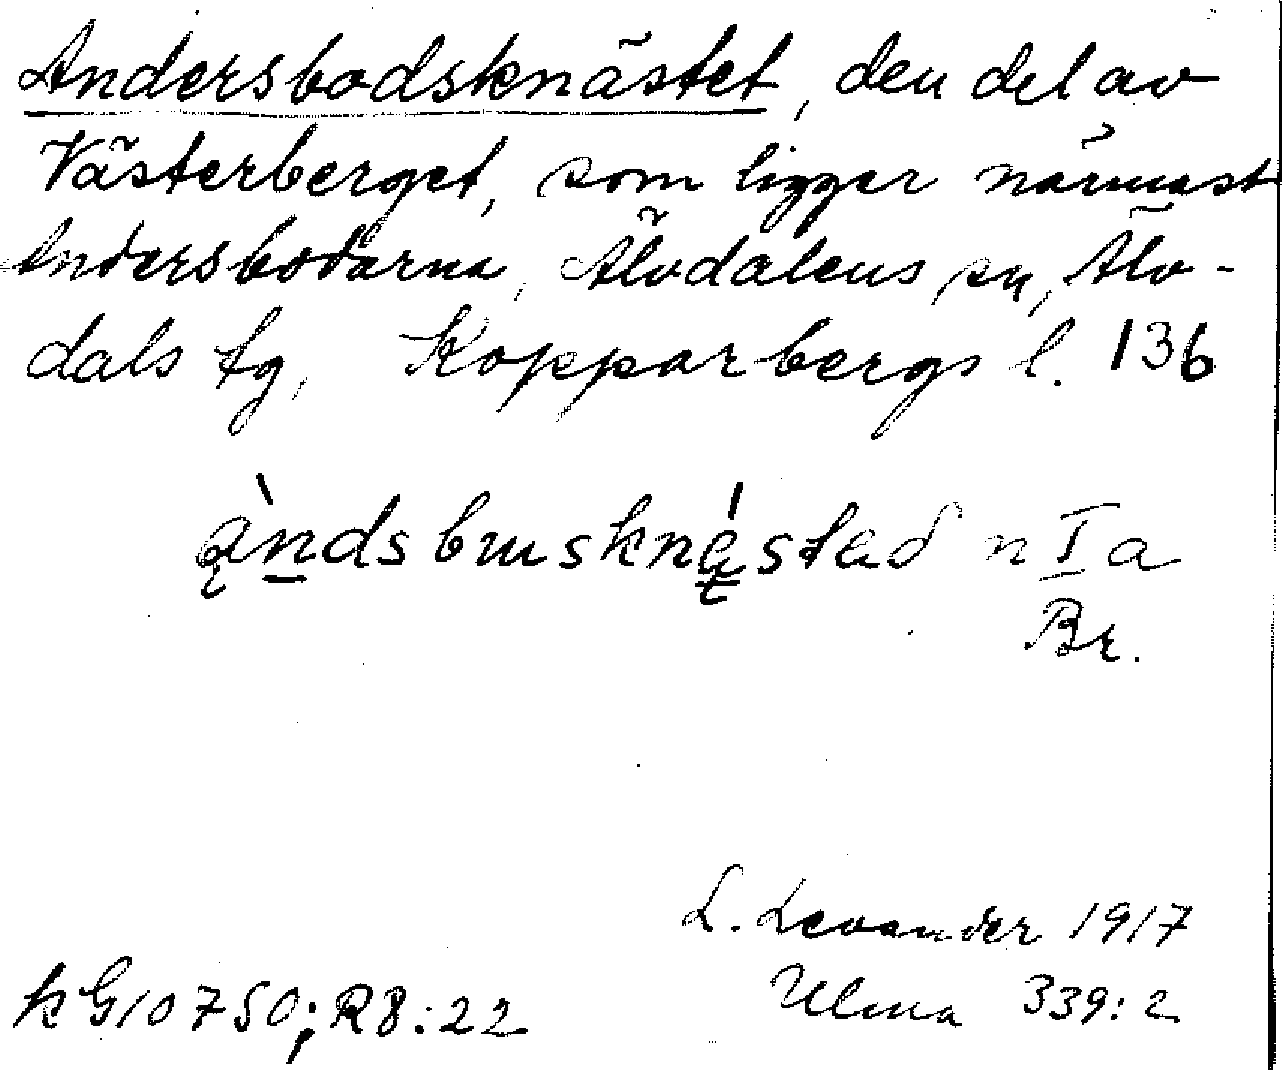 Andersbodsknästet, den del av
Västerberget, som ligger närmast
Andersbodarna, Älvdalens sn, Älv-
dals tg, Kopparbergs l. 136
ą̀ndsbuskną́stað n I a
Br.
L. Levander 1917
Ulma 339:2
kG10750; R8:22